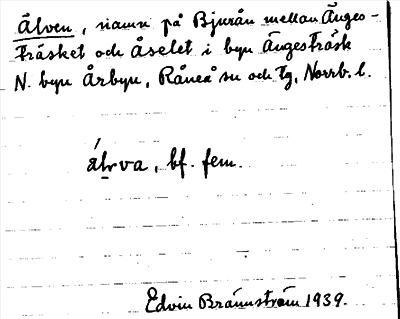 Älven, namn på Bjurån mellan Änges-
träsket och Åselet i byn Ängesträsk
N. byn Årbyn, Råneå sn och tg, Norrb. l.
álrva, bf. fem.
Edvin Brännström 1939.